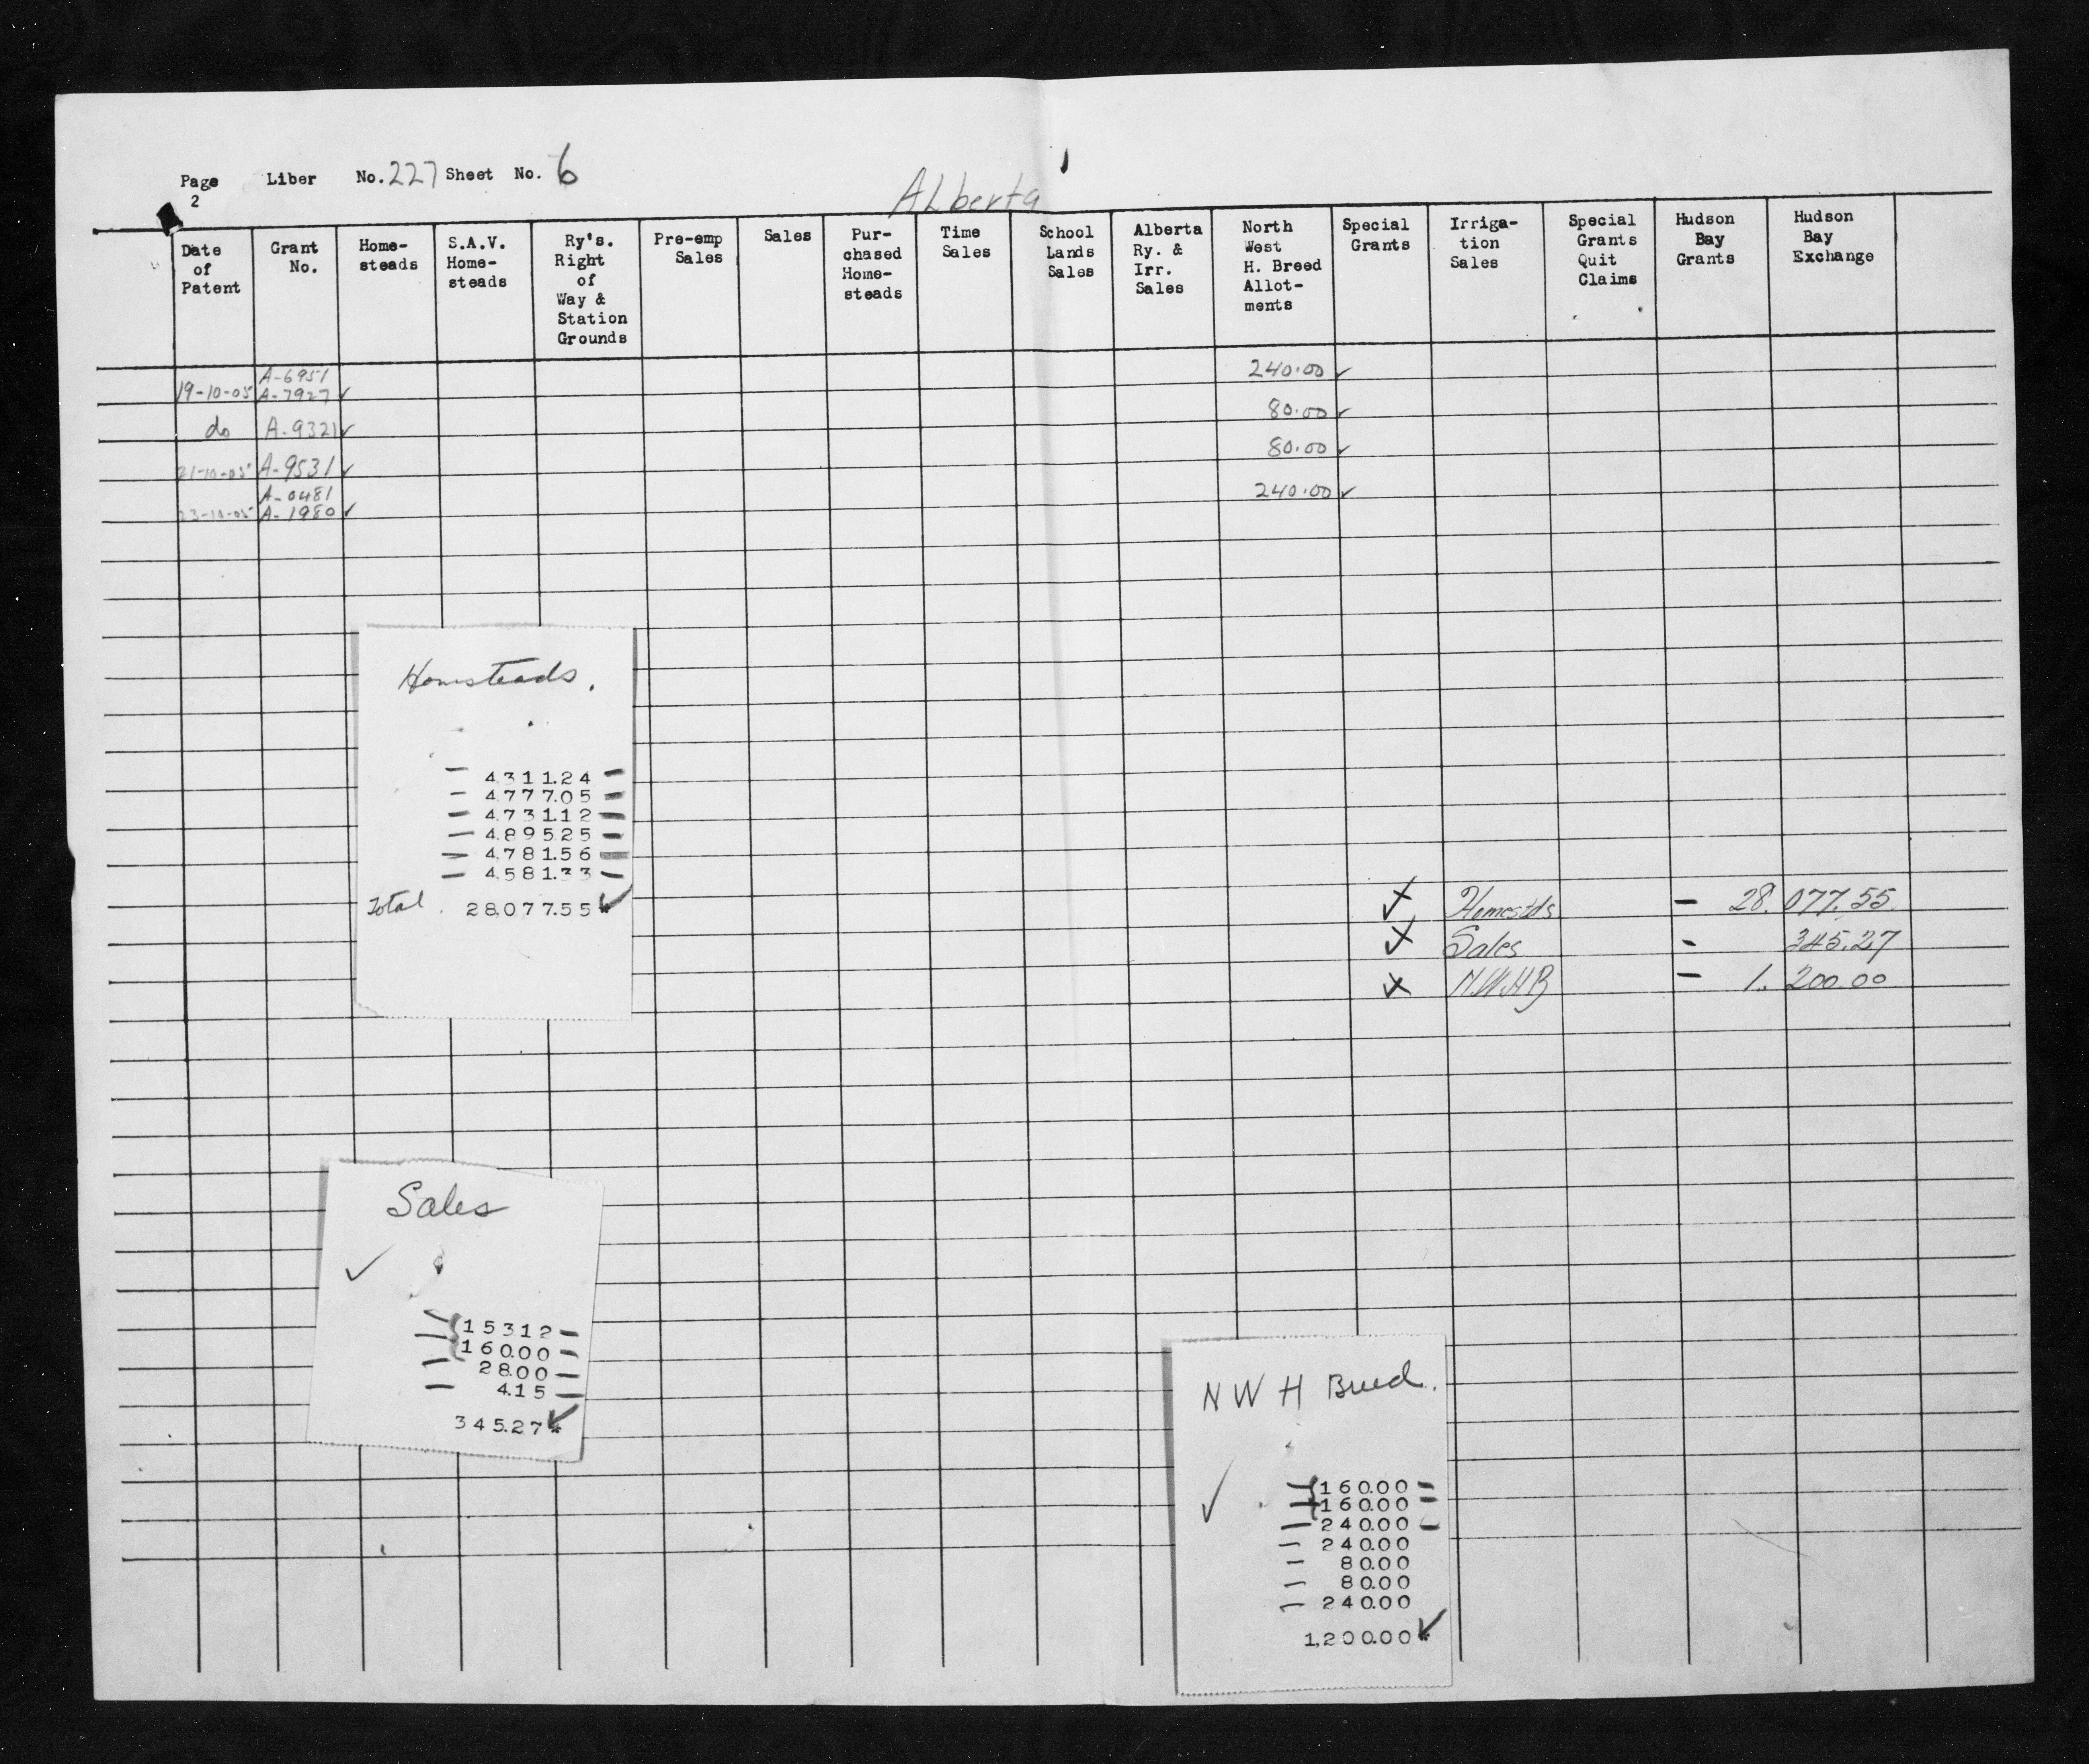 Page Liber No. 227 Sheet No. 6
2
Alberta
Date of Patent
Grant No.
Home-steads
S.A.V. Home-steads
Ry's. Right of Way & Station Grounds
Pre-emp Sales
Sales
Pur-chased Home-steads
Time Sales
School Lands Sales
Alberta Ry. & Irr. Sales
North West H. Breed Allot-ments
Special Grants
Irriga-tion Sales
Special Grants Quit Claims
Hudson Bay Grants
Hudson Bay Exchange
A-6951
19-10-05 A-7927 ✓ 240.00 ✓
do A-9321 ✓ 80.00 ✓
21-10-05 A-9531 ✓ 80.00 ✓
A-0481
23-10-05 A-1980 ✓ 240.00 ✓
Homsteads.
4,311.24
4,777.05
4,731.12
4,895.25
4,781.56
4,581.33
Total 28,077.55*
Homestds - 28,077.55
Sales - 345.27
N.W.H.B - 1,200.00
Sales
✓
153.12
160.00
28.00
4.15
345.27*
N W H Breed.
✓
160.00
160.00
240.00
240.00
80.00
80.00
240.00
1,200.00*